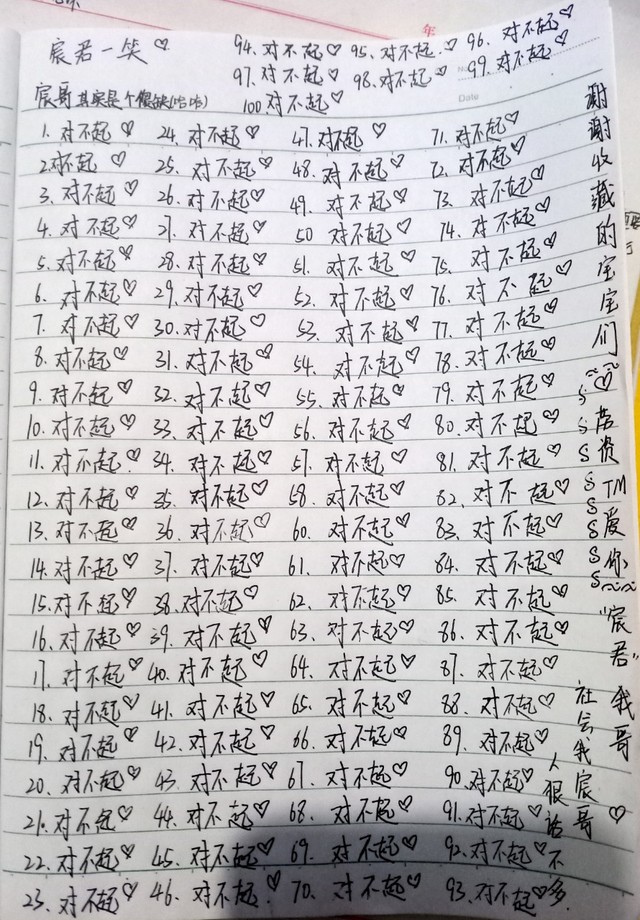 宸君一笑♡
94.对不起♡ 95.对不起.♡ 96.对不起♡
97.对不起♡ 98.对不起♡ 99.对不起♡
宸哥其实是个
100.对不起♡
1.对不起♡ 24.对不起♡ 47.对不起♡ 71.对不起♡
2.对不起♡ 25.对不起♡ 48.对不起♡ 72.对不起♡
3.对不起♡ 26.对不起♡ 49.对不起♡ 73.对不起♡
4.对不起♡ 27.对不起♡ 50 对不起♡ 74.对不起♡
5.对不起♡ 28.对不起♡ 51.对不起♡ 75.对不起♡
6.对不起♡ 29.对不起♡ 52.对不起♡ 76.对不起♡
7.对不起♡ 30.对不起♡ 53.对不起♡ 77.对不起♡
8.对不起♡ 31.对不起♡ 54.对不起♡ 78.对不起♡
9.对不起♡ 32.对不起♡ 55.对不起♡ 79.对不起♡
10.对不起♡ 33.对不起♡ 56.对不起♡ 80.对不起♡
11.对不起♡ 34.对不起♡ 57.对不起♡ 81.对不起♡
12.对不起♡ 35.对不起♡ 58.对不起♡ 82.对不起♡
13.对不起♡ 36.对不起♡ 60.对不起♡ 83.对不起♡
14.对不起♡ 37.对不起♡ 61.对不起♡ 84.对不起♡
15.对不起♡ 38.对不起♡ 62.对不起♡ 85.对不起♡
16.对不起♡ 39.对不起♡ 63.对不起♡ 86.对不起♡
17.对不起♡ 40.对不起♡ 64.对不起♡ 87.对不起♡
18.对不起♡ 41.对不起♡ 65.对不起♡ 88.对不起♡
19.对不起♡ 42.对不起♡ 66.对不起♡ 89.对不起♡
20.对不起♡ 43.对不起♡ 67.对不起♡ 90.对不起♡
21.对不起♡ 44.对不起♡ 68.对不起♡ 91.对不起♡
22.对不起♡ 45.对不起♡ 69.对不起♡ 92.对不起♡
23.对不起♡ 46.对不起♡ 70.对不起♡ 93.对不起♡
谢谢收藏的宝宝们♡
资TM爱你
"宸君"我哥♡
社会我宸哥
人狠话不多